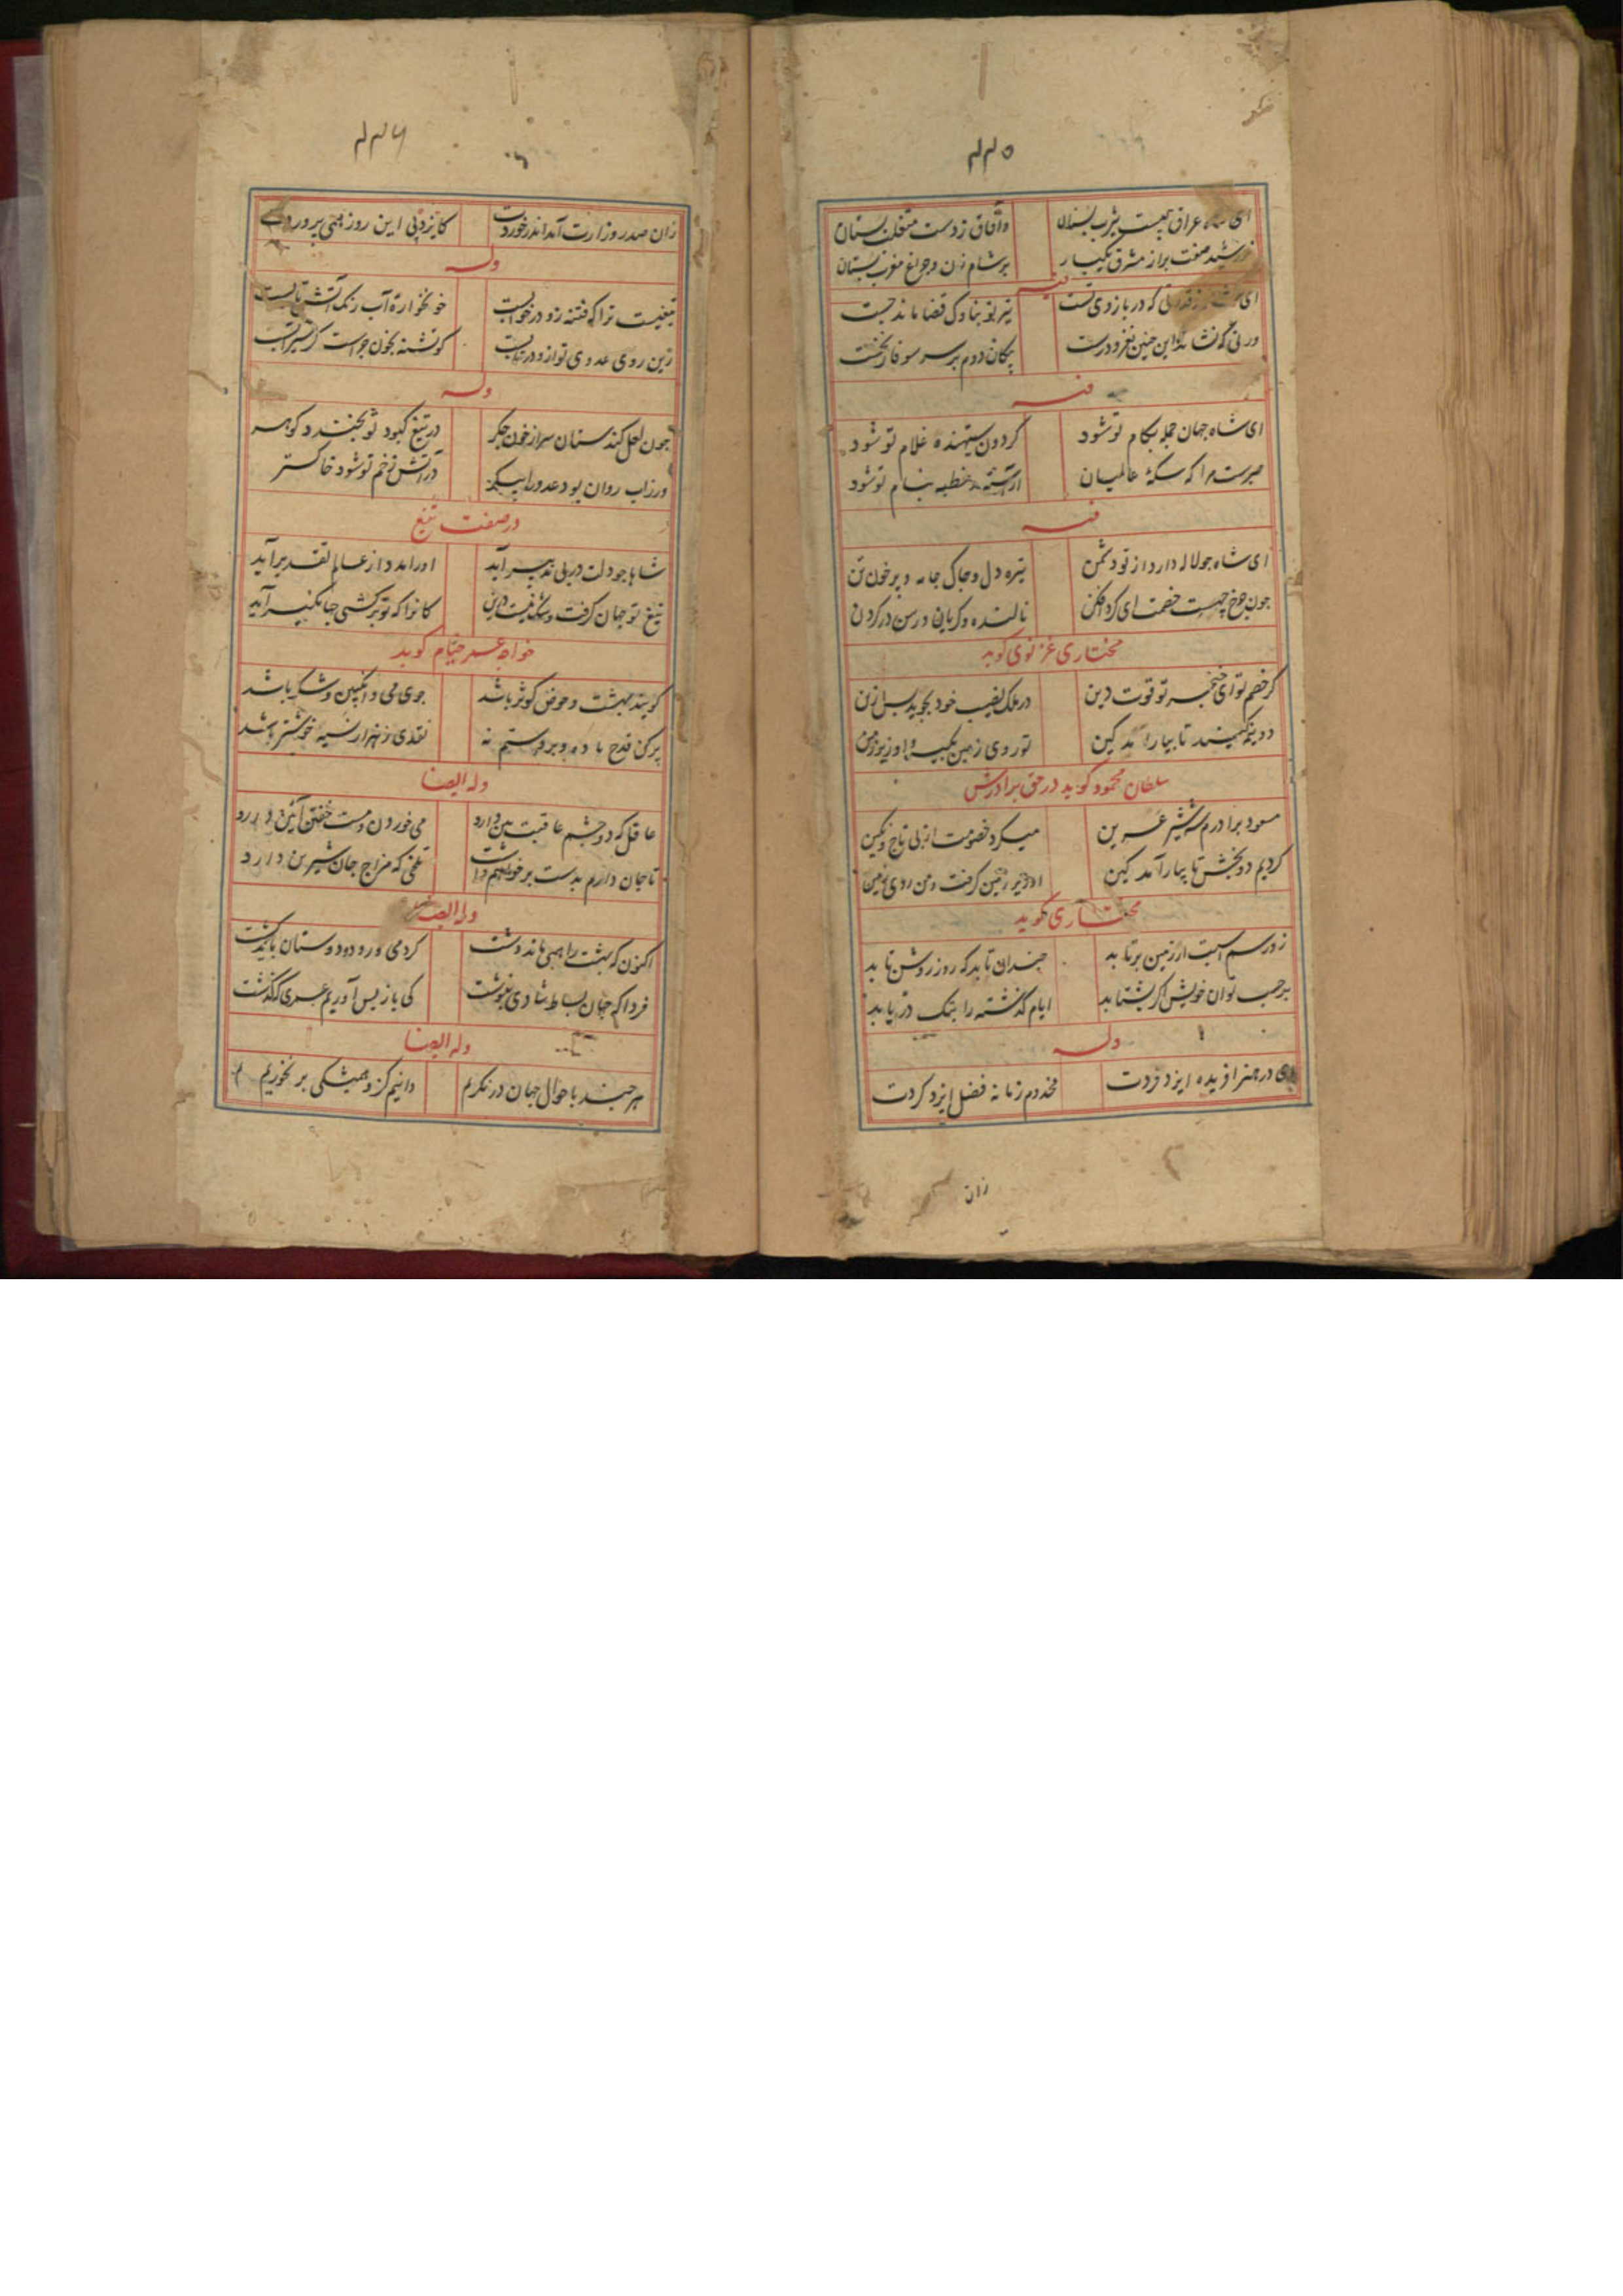 ۴۴۵
ای شاه عراق چیست یثرب بستان
وآفاق ز دست متغلب بستان
خورشید صفت براز مشرق یکبار
بر شام زن و چراغ مغرب بستان
فیه
ای که در بازوی تست
تیر تو بناوک قضا ماند جست
این چنین نغز و درست
پیکان دوم بر سر سوفار نخست
فیه
ای شاه جهان جمله بکام تو شود
گردون ستیهنده غلام تو شود
صبرست مرا که سکهٔ عالمیان
آراسته خطبه بنام تو شود
فیه
ای شاه جو لاله دارد از تو دشمن
تیره دل و جاک جامه و پر خون تن
جون چرخ چیست خصمت ای گرد افکن
نالنده و گریان و رسن در گردن
مختاری غزنوی گوید
گر خصم تو ای خنجر تو قوت دین
در ملک نصیب خود بجوید پس ازین
دو نیمه کنید تا بیارآمد کین
تو روی زمین بگیر و او زیر زمین
سلطان محمود گوید در حق برادرش
مسعود برادرم شه شیر عرین
میکرد خصومت از پی تاج و نگین
کردیم دو بخش تا بیارآمد کین
او زیر زمین گرفت و من روی زمین
مختاری گوید
زور سم اسبت ار زمین برتابد
چندان تابد که روز روشن تابد
بر حسب توان خویش اگر بشتابد
ایام گذشته را بتک دریابد
وله
ای در هنر افریده ایزد فردت
مخدوم زمانه فضل ایزد کردت
زان
۴۴۶
زان صدر وزارت آمد اندر خوردت
کایزد پی این روز همی پروردت
وله
تیغیست ترا که فتنه زو در خوابست
خونخواره آب رنک آتش تابست
زین روی عدوی تو ازو در تابست
کو تشنه بخون جو است گر سیرابست
وله
جون لعل کند سنان سر از خون جکر
در تیغ کبود تو بخندد کوهر
ور زاب روان بود عدو را پیکر
در آتش زخم تو شود خاکستر
در صفت تیغ
شاها جو دلت در پی تدبیر آید
او را مدد از عالم تقدیر آید
تیغ تو جهان گرفت و شک نیست درین
کانرا که تو برکشی جهانگیر آید
خواجه عمر خیام گوید
گویند بهشت و حوض کوثر باشد
جوی می و انگبین و شکر باشد
پر کن قدح باده و بر دستم نه
نقدی ز هزار نسیه خوشتر باشد
وله ایضا
عاقل که دو چشم عاقبت بین دارد
می خوردن و مست خفتن آئین دارد
تا جان دارم بدست برخواهم داشت
تلخی که مزاج جان شیرین دارد
وله ایضا
اکنون که بهشت را همی ماند دشت
گرد می و رود و دوستان باید گشت
فردا که جهان بساط شادی بنوشت
کی باز پس آوریم عمری که گذشت
وله ایضا
هر چند باحوال جهان درنگریم
دانیم کزو همیشگی برنخوریم